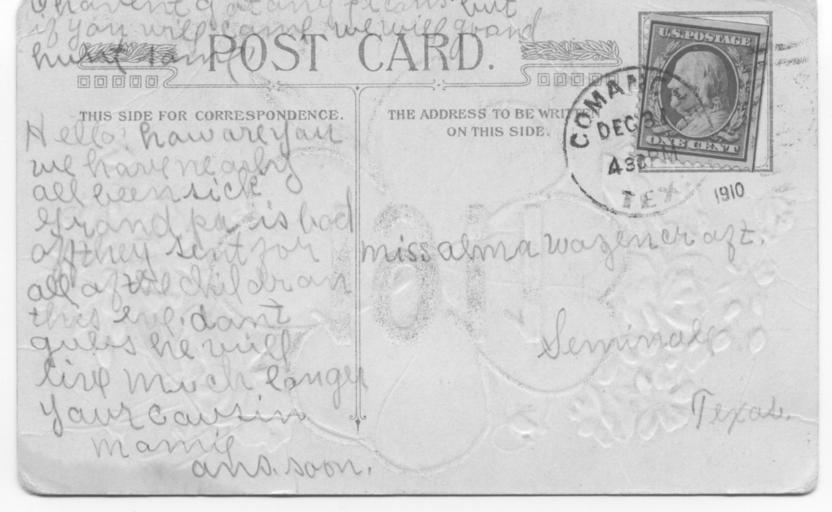 I havent got any pecans but
if you will come we will go and
hunt some
POST CARD.
THIS SIDE FOR CORRESPONDENCE.
THE ADDRESS TO BE WRITTEN
ON THIS SIDE.
U.S. POSTAGE
ONE CENT
COMANCHE
DEC 31
430 PM
TEX
1910
Hello: how are you
we have nearby
all been sick
Grand pa is bad
off they sent for
all of the children
this eve. dont
guess he will
live much longer
your cousin
mamie
ans. soon.
miss alma wazencraft.
Seminole
Texas.